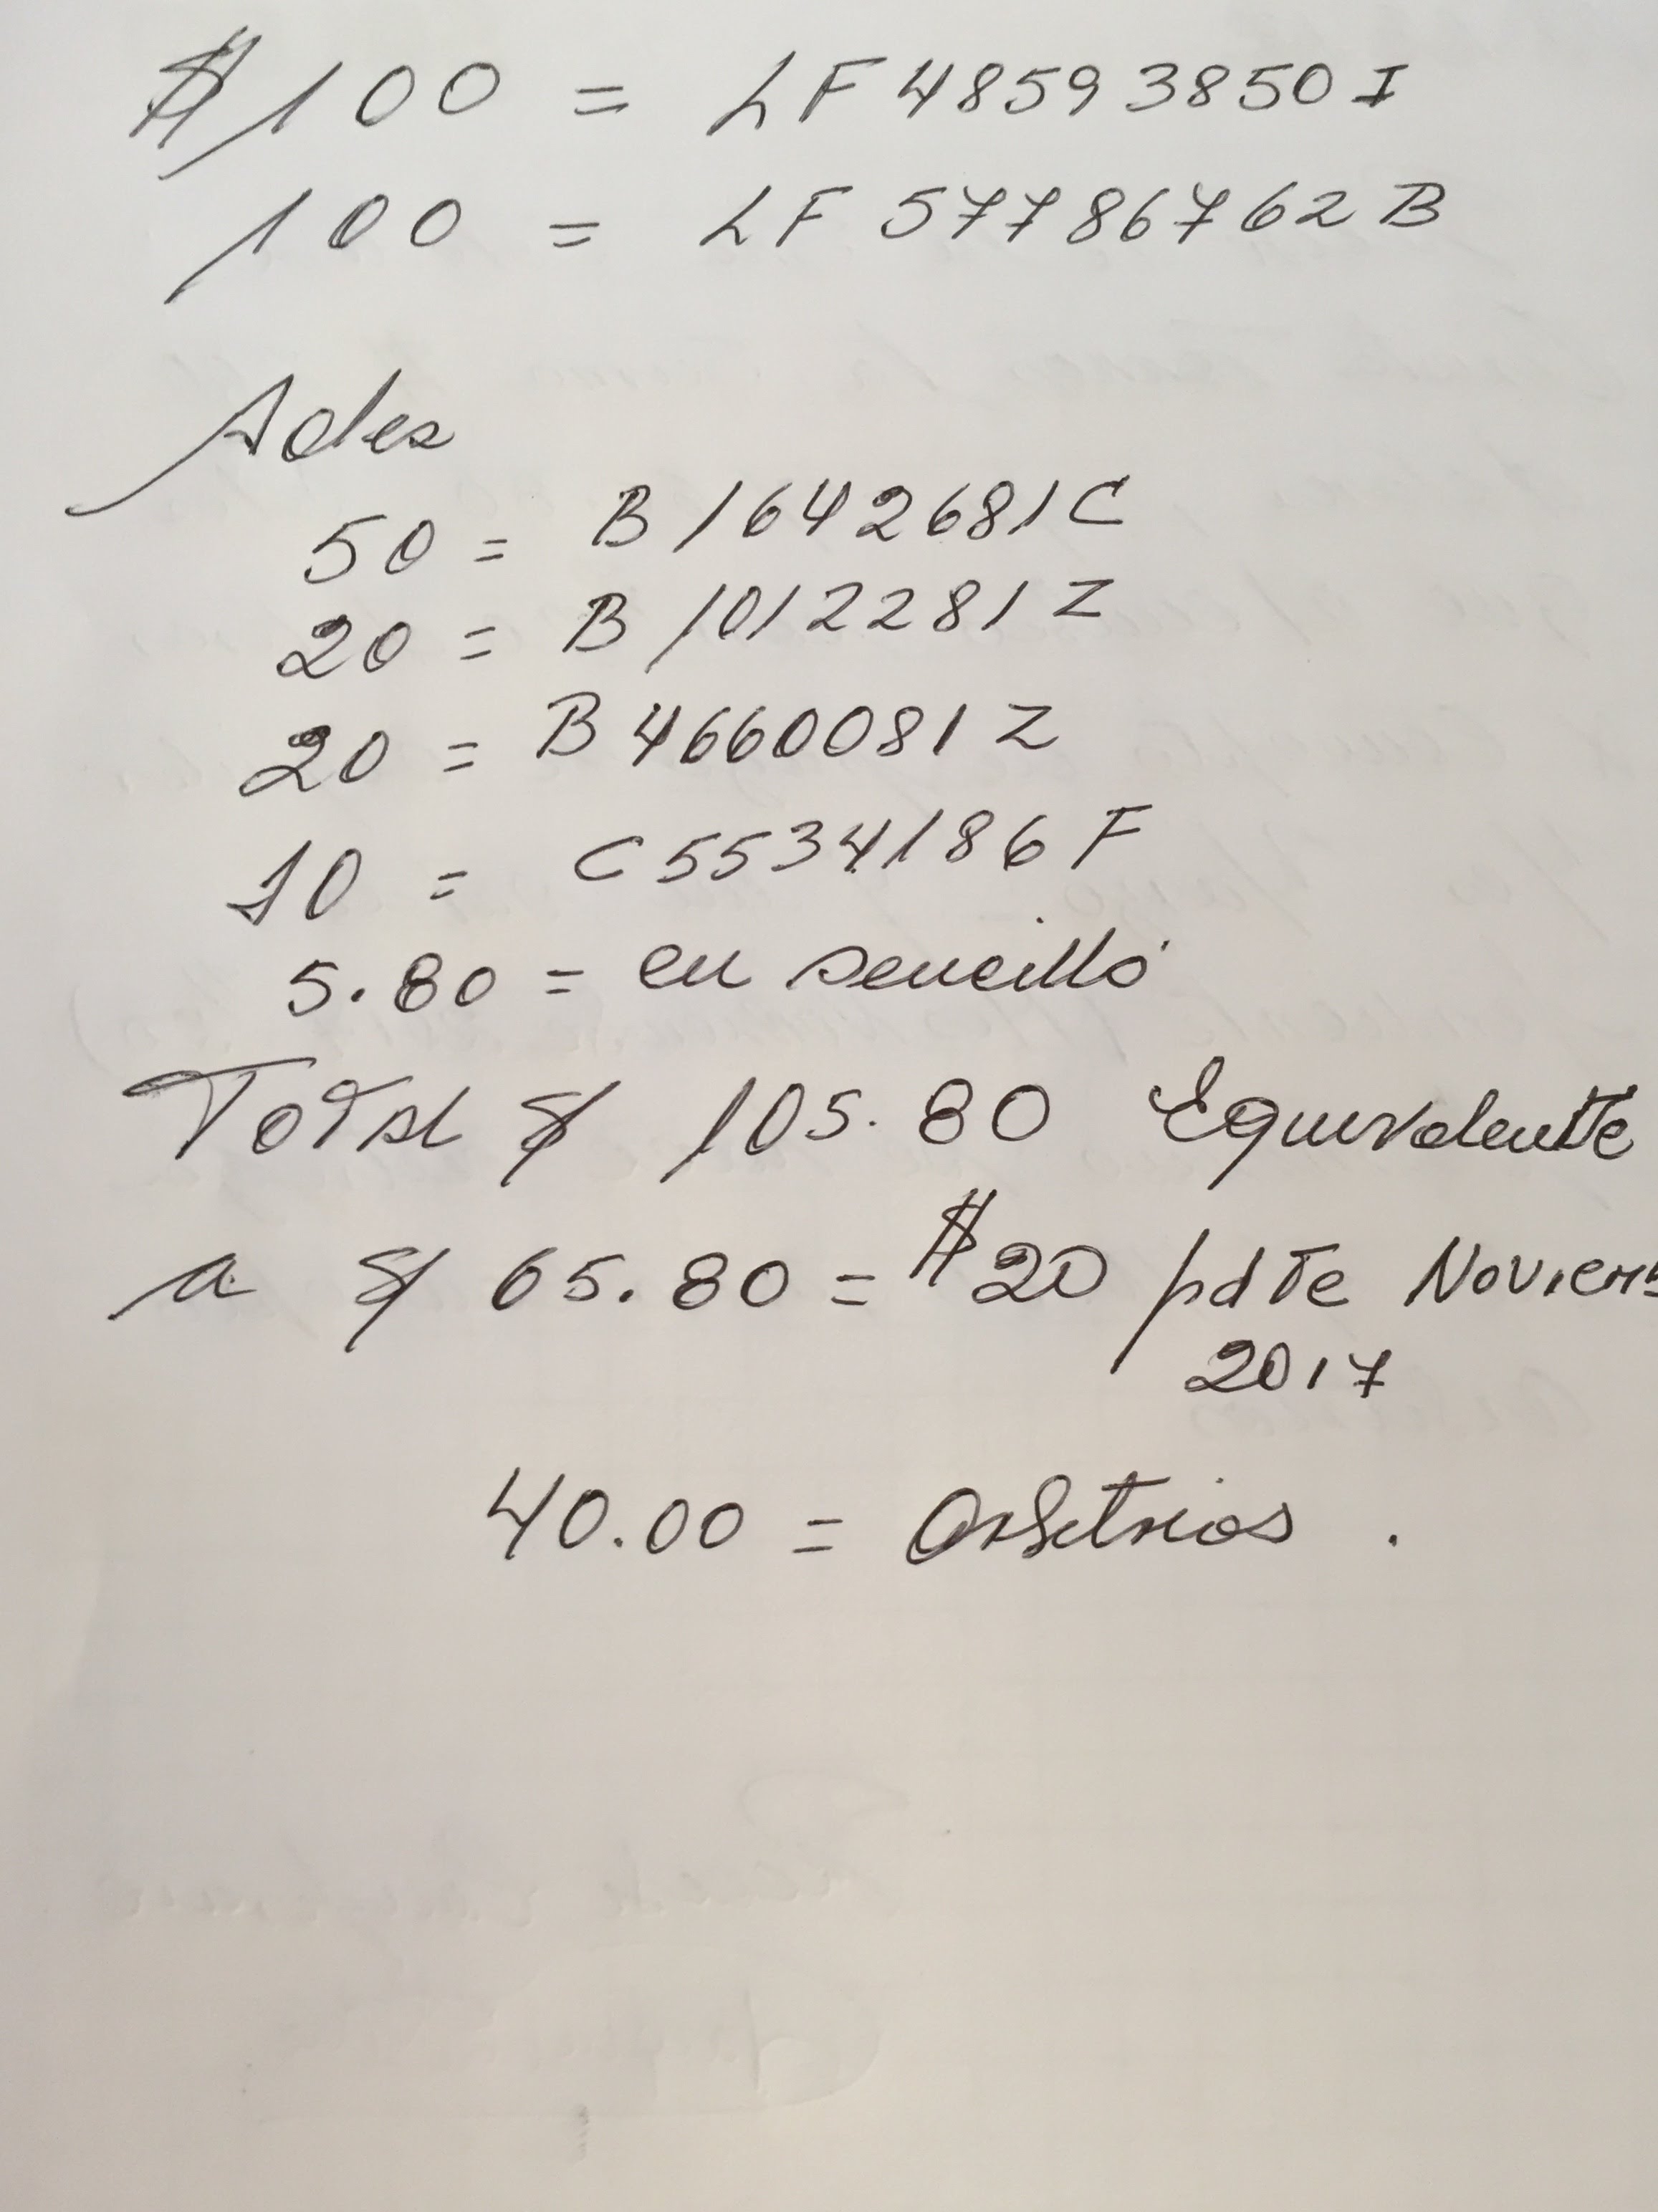 $ 100 = LF 48593850 I
100 = LF 57786762 B
Ades
50 = B 1642681 C
20 = B 1012281 Z
20 = B 4660081 Z
10 = C 5534186 F
5.80 = en sencillo
Total S/ 105.80 Equivalente
a S/ 65.80 = $20 pdte Noviemb
2017
40.00 = Arbitrios.